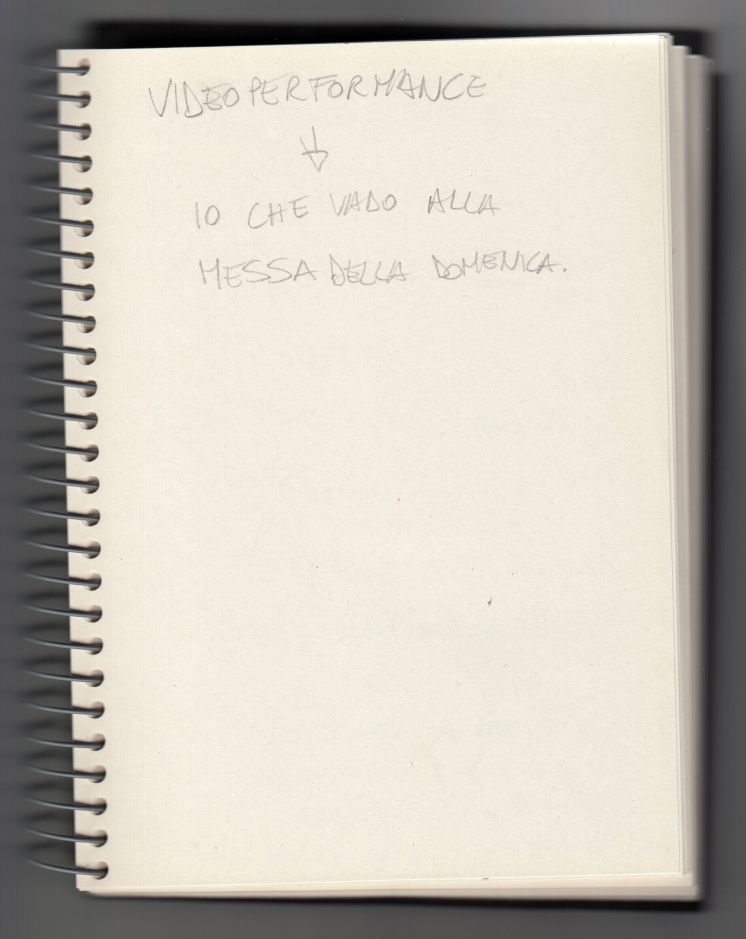 VIDEOPERFORMANCE
IO CHE VADO ALLA
MESSA DELLA DOMENICA.